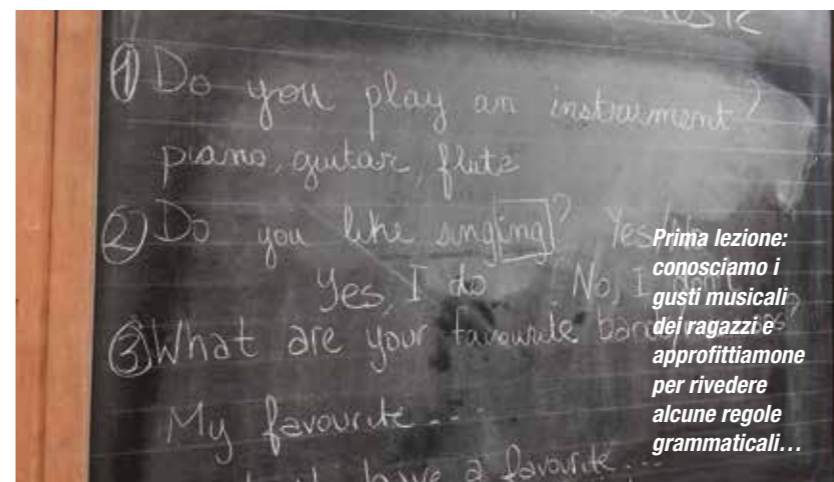 ① Do you play an instrument?
piano, guitar, flute
② Do you like singing? Yes
Yes, I do No, I
③ What are your favourite
My favourite ....
have a favourite ...
Prima lezione:
conosciamo i
gusti musicali
dei ragazzi e
approfittiamone
per rivedere
alcune regole
grammaticali…